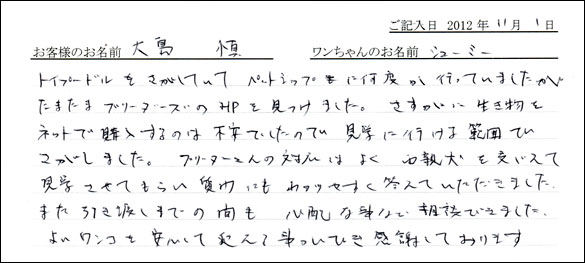 ご記入日 2012年 11月 1日
お客様のお名前 大島 慎 ワンちゃんのお名前 シューミー
トイプードルをさがしていて ペットショップもに何度か行っていましたが
たまたまブリーダーズのHPを見つけました。さすがに生き物を
ネットで購入するのは不安でしたので 見学に行ける範囲で
さがしました。ブリーダーさんの対応はよく 両親犬を交じえて
見学させてもらい質問にもわかりやすく答えていただきました。
また引き渡しまでの間も 心配な事など 相談できました。
よいワンコを安心して迎える事ができ感謝しております